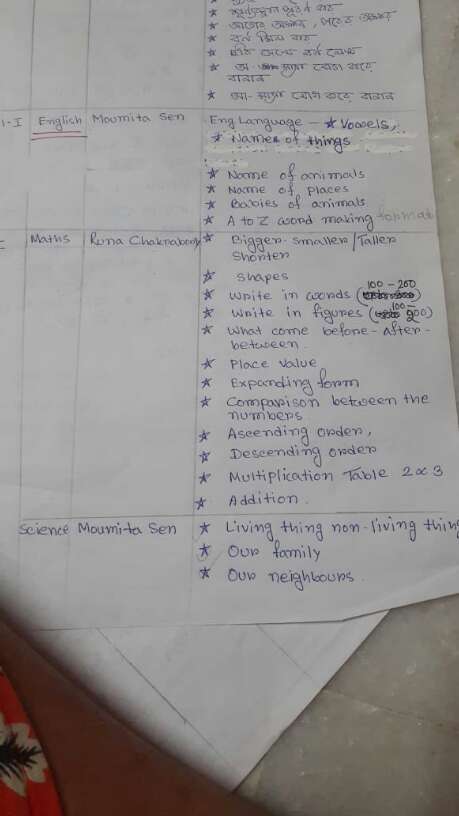 আগের অক্ষর, পরের অক্ষর
* আ-কার যোগ করে বানান
1-I English Moumita Sen Eng Language - * Vowels,
* Names of things
* Name of animals
* Name of places
* Babies of animals
* A to Z word making format
Maths Runa Chakraborty * Bigger-smaller/Taller
Shorter
* Shapes
* Write in words (100-200)
* Write in figures (100-200)
* What come before-after-
between.
* Place value
* Expanding form
* Comparison between the
numbers
* Ascending order,
* Descending order
* Multiplication Table 2∝3
* Addition.
Science Moumita Sen * Living thing non-living thing
* Our family
* Our neighbours.